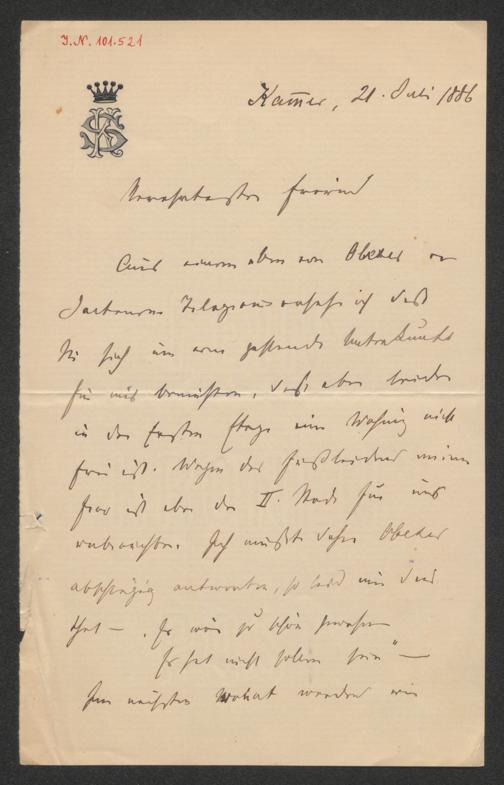 I.N. 101.521
Kammer, 21. Juli 1886
Verehrtester Freund
Aus einem eben von Obexer er-
haltenen Telegram ersehe ich daß
Sie sich um eine passende Unterkunft
für uns bemühten, daß aber leider
in der ersten Etage eine Wohnung nicht
frei ist. Wegen des Fußleidens meiner
Frau ist aber der II. Stock für uns
unbrauchbar. Ich mußte daher Obexer
abschlägig antworten, so leid mir dies
that — . Es wär so schön gewesen
Es hat nicht sollen sein" —
Im nächsten Monat werden wir